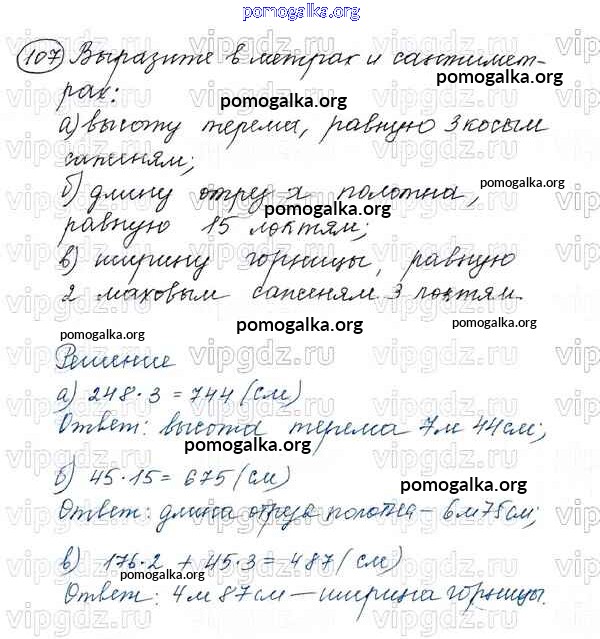 pomogalka.org
107 Выразите в метрах и сантимет-
pomogalka.org
рах:
pomogalka.org
а) высоту терема, равную 3 косым
саженям;
pomogalka.org
б) длину отреза полотна,
pomogalka.org
равную 15 локтям;
в) ширину горницы, равную
pomogalka.org
2 маховым саженям 3 локтям.
pomogalka.org
pomogalka.org
pomogalka.org
Решение
vipgdz.ru
а) 248·3=744 (см)
Ответ: высота терема 7м 44см;
pomogalka.org
б) 45·15=675 (см)
pomogalka.org
Ответ: длина отреза полотна – 6м75см;
в) 176·2 + 45·3 = 487 (см)
pomogalka.org
pomogalka.org
Ответ: 4м 87см – ширина горницы.